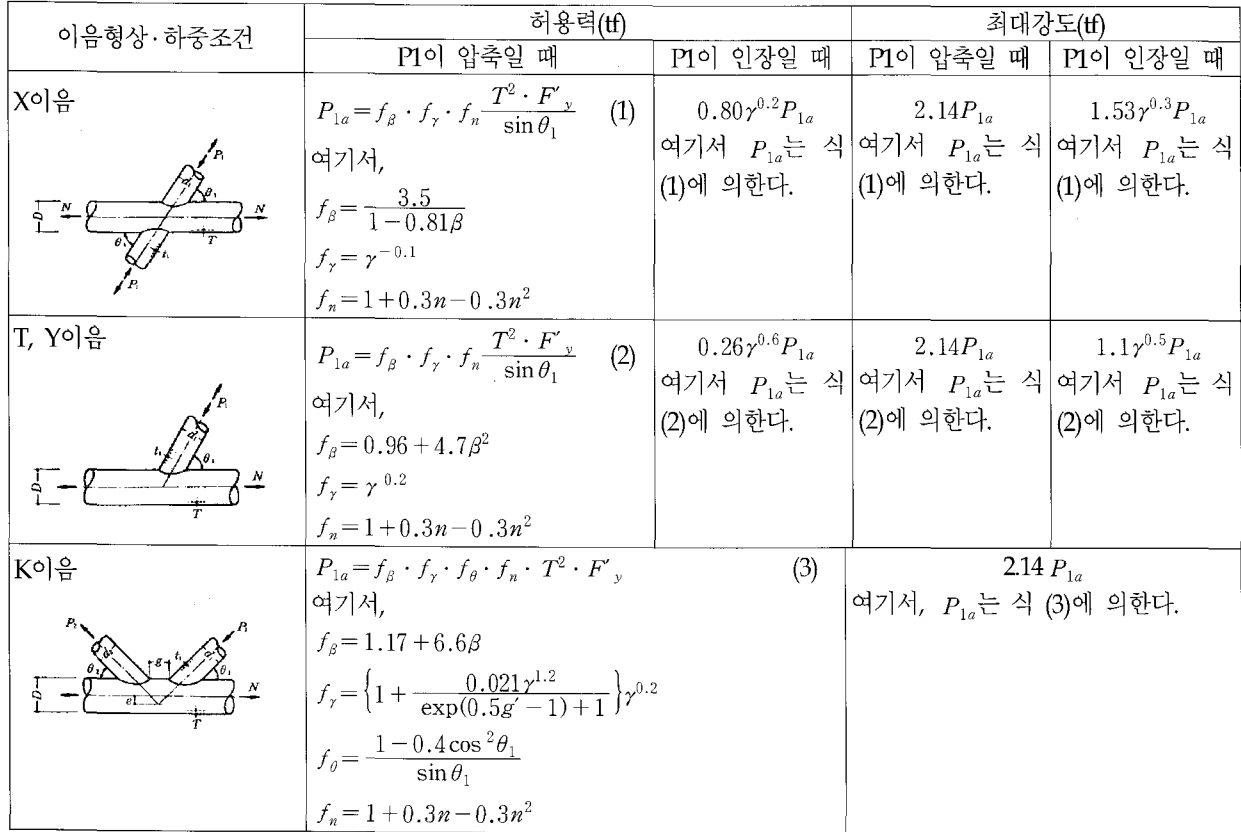 이음형상·하중조건
허용력(tf)
최대강도(tf)
P1이 압축일 때
P1이 인장일 때
P1이 압축일 때
P1이 인장일 때
X이음
P₁ d₁ θ₁
D N N
θ₁ t₁ T
P₁
P_{1a} = f_β · f_γ · f_n \frac{T² · F′_y}{sin θ₁} (1)
여기서,
f_β = \frac{3.5}{1-0.81β}
f_γ = γ^{-0.1}
f_n = 1+0.3n-0.3n²
0.80γ^{0.2}P_{1a}
여기서 P_{1a}는 식
(1)에 의한다.
2.14P_{1a}
여기서 P_{1a}는 식
(1)에 의한다.
1.53γ^{0.3}P_{1a}
여기서 P_{1a}는 식
(1)에 의한다.
T, Y이음
P₁
t₁ d₁ θ₁
D N
T
P_{1a} = f_β · f_γ · f_n \frac{T² · F′_y}{sin θ₁} (2)
여기서,
f_β = 0.96+4.7β²
f_γ = γ^{0.2}
f_n = 1+0.3n-0.3n²
0.26γ^{0.6}P_{1a}
여기서 P_{1a}는 식
(2)에 의한다.
2.14P_{1a}
여기서 P_{1a}는 식
(2)에 의한다.
1.1γ^{0.5}P_{1a}
여기서 P_{1a}는 식
(2)에 의한다.
K이음
P₂ P₁
d₂ g t₁ d₁
θ₂ θ₁
D e N
T
P_{1a} = f_β · f_γ · f_θ · f_n · T² · F′_y (3)
여기서,
f_β = 1.17+6.6β
f_γ = {1+\frac{0.021γ^{1.2}}{exp(0.5g′-1)+1}}γ^{0.2}
f_θ = \frac{1-0.4cos²θ₁}{sin θ₁}
f_n = 1+0.3n-0.3n²
2.14 P_{1a}
여기서, P_{1a}는 식 (3)에 의한다.